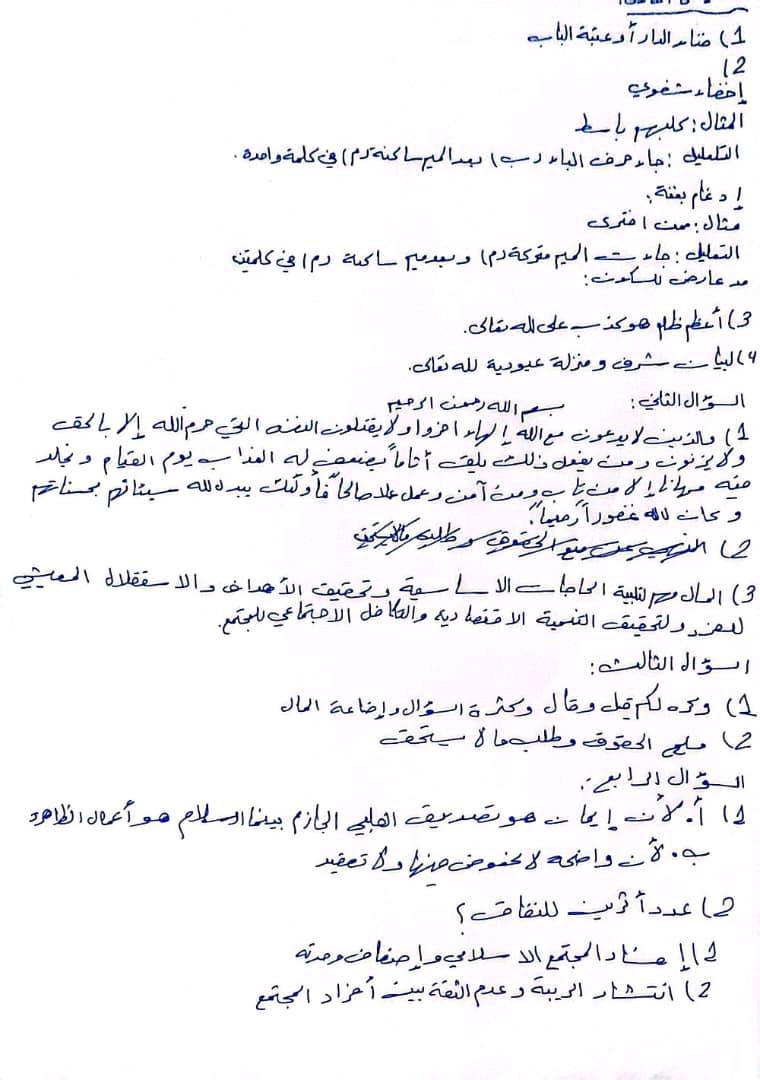 1) فناء الدار أو عتبة الباب
2)
إخفاء شفوي
المثال: كلبهم باسط
التعليل: جاء حرف الباء (ب) بعد الميم ساكنة (م) في كلمة واحدة.
إدغام بغنة:
مثال: ممن افترى
التعليل: جاءت الميم متحركة (م) وبعد ميم ساكنة (م) في كلمتين
مد عارض للسكون:
3) أعظم ظلم هو كذب على لله تعالى.
4) لبيان شرف ومنزلة عبودية لله تعالى.
السؤال الثاني: بسم الله رحمن الرحيم
1) والذين لا يدعون مع الله إلهاء اخروا ولا يقتلون النفس التي حرم الله إلا بالحق
ولا يزنون ومن يفعل ذلك يلق أثاماً يضعف له العذاب يوم القيام ونجلد
فيه مهانا إلا من تاب ومن آمن وعمل عملا صالحاً فأولئك يبدل لله سيئاتهم بحسناتهم
وكان لله غفوراً رحيماً.
2)
3) المال مهم لتلبية الحاجات الاساسية وتحقيق الأهداف والاستقلال المعيشي
للفرد ولتحقيق التنمية الاقتصادية والتكافل الاجتماعي للمجتمع.
السؤال الثالث:
1) وكره لكم قيل وقال وكثرة السؤال وإضاعة المال
2) الحقوق وطلب ما لا يستحق
السؤال الرابع:
1) أ. لأن إيمان هو تصديق القلبي الجازم بينما السلام هو أعمال الظاهرة
ب. لأن واضحه لا غموض فيها ولا تعقيد
2) عدد أثرين للنفاق؟
1) إفساد المجتمع الاسلامي وإضعاف وحدته
2) انتشار الريبة وعدم الثقة بين أفراد المجتمع